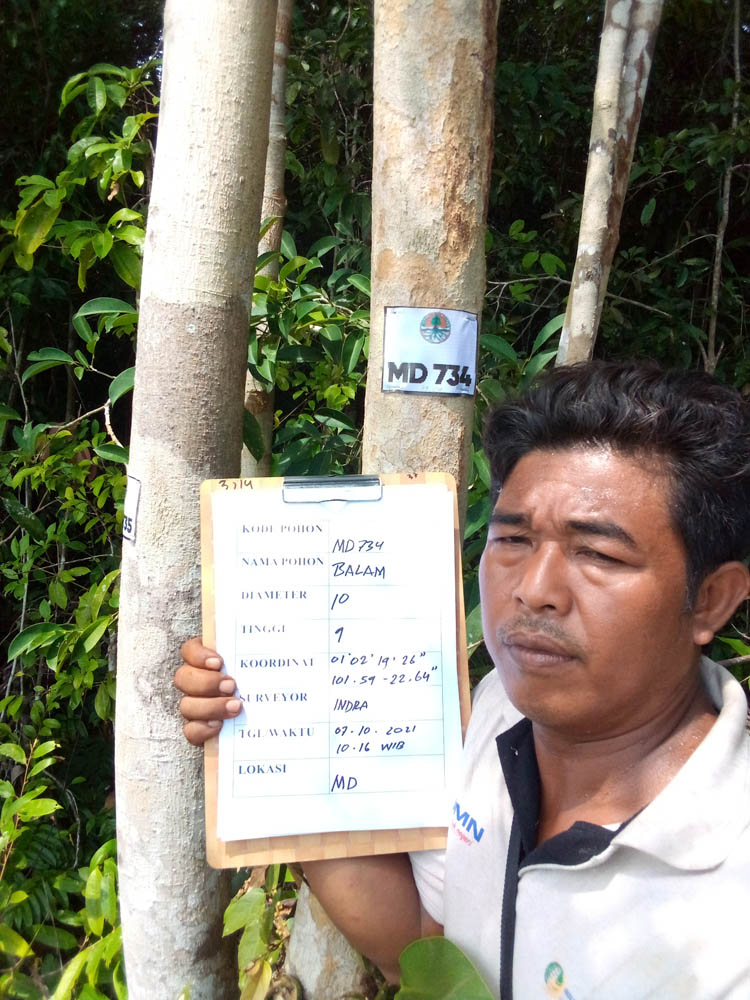 MD 734
35
3714
KODE POHON MD 734
NAMA POHON BALAM
DIAMETER 10
TINGGI 9
KOORDINAT 01°02'19.26"
101.59-22.64"
SURVEYOR INDRA
TGL/WAKTU 07.10.2021
10.16 WIB
LOKASI MD
MN